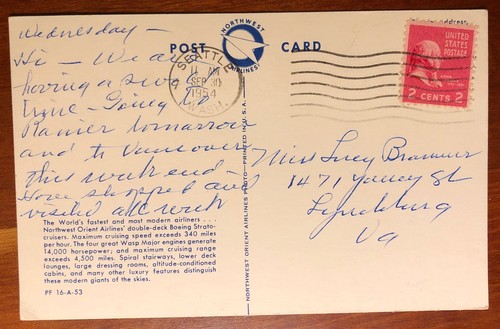 Wednesday –
Hi – We are
having a swell
time – Going to
Ranier tomorrow
and to Vancouver
this week end
Have shopped and
visited all week
The World's fastest and most modern airliners . . .
Northwest Orient Airlines' double-deck Boeing Strato-
cruisers. Maximum cruising speed exceeds 340 miles
per hour. The four great Wasp Major engines generate
14,000 horsepower; and maximum cruising range
exceeds 4,500 miles. Spiral stairways, lower deck
lounges, large dressing rooms, altitude-conditioned
cabins, and many other luxury features distinguish
these modern giants of the skies.
PF 16-A-53
POST CARD
NORTHWEST
AIRLINES
NORTHWEST ORIENT AIRLINES PHOTO—PRINTED IN U.S.A.
SEATTLE
11 AM
SEP 30
1954
WASH.
UNITED
STATES
POSTAGE
2 CENTS 2
Miss Lucy
1471 Yancey St
Lynchburg
Va